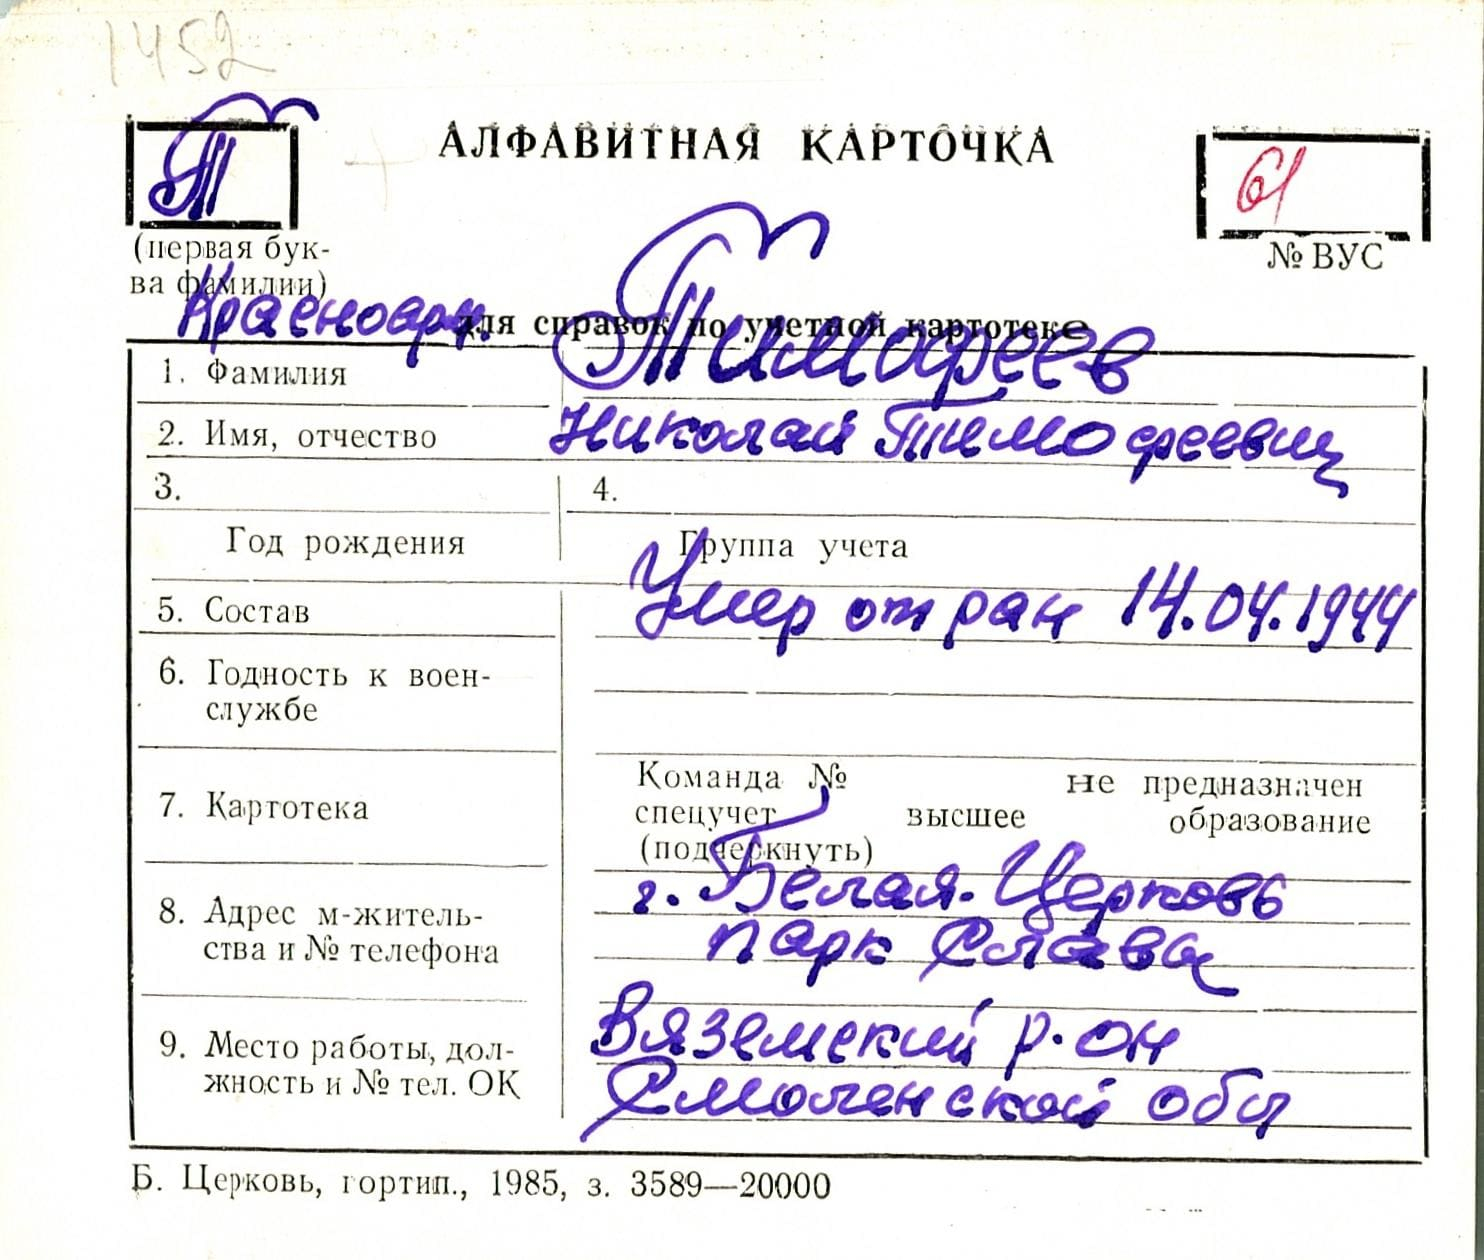 1452
Т
АЛФАВИТНАЯ КАРТОЧКА
61
(первая бук-
ва фамилии)
№ ВУС
Красноарм.
для справок по учетной картотеке
1. Фамилия Тимофеев
2. Имя, отчество Николай Тимофеевич
3. 4.
Год рождения Группа учета
5. Состав Умер от ран 14.04.1944
6. Годность к воен-
службе
Команда № не предназначен
7. Картотека спецучет высшее образование
(подчеркнуть)
8. Адрес м-житель- г. Белая-Церковь
ства и № телефона парк Славы
9. Место работы, дол- Вяземский р-он
жность и № тел. ОК Смоленской обл
Б. Церковь, гортип., 1985, з. 3589—20000